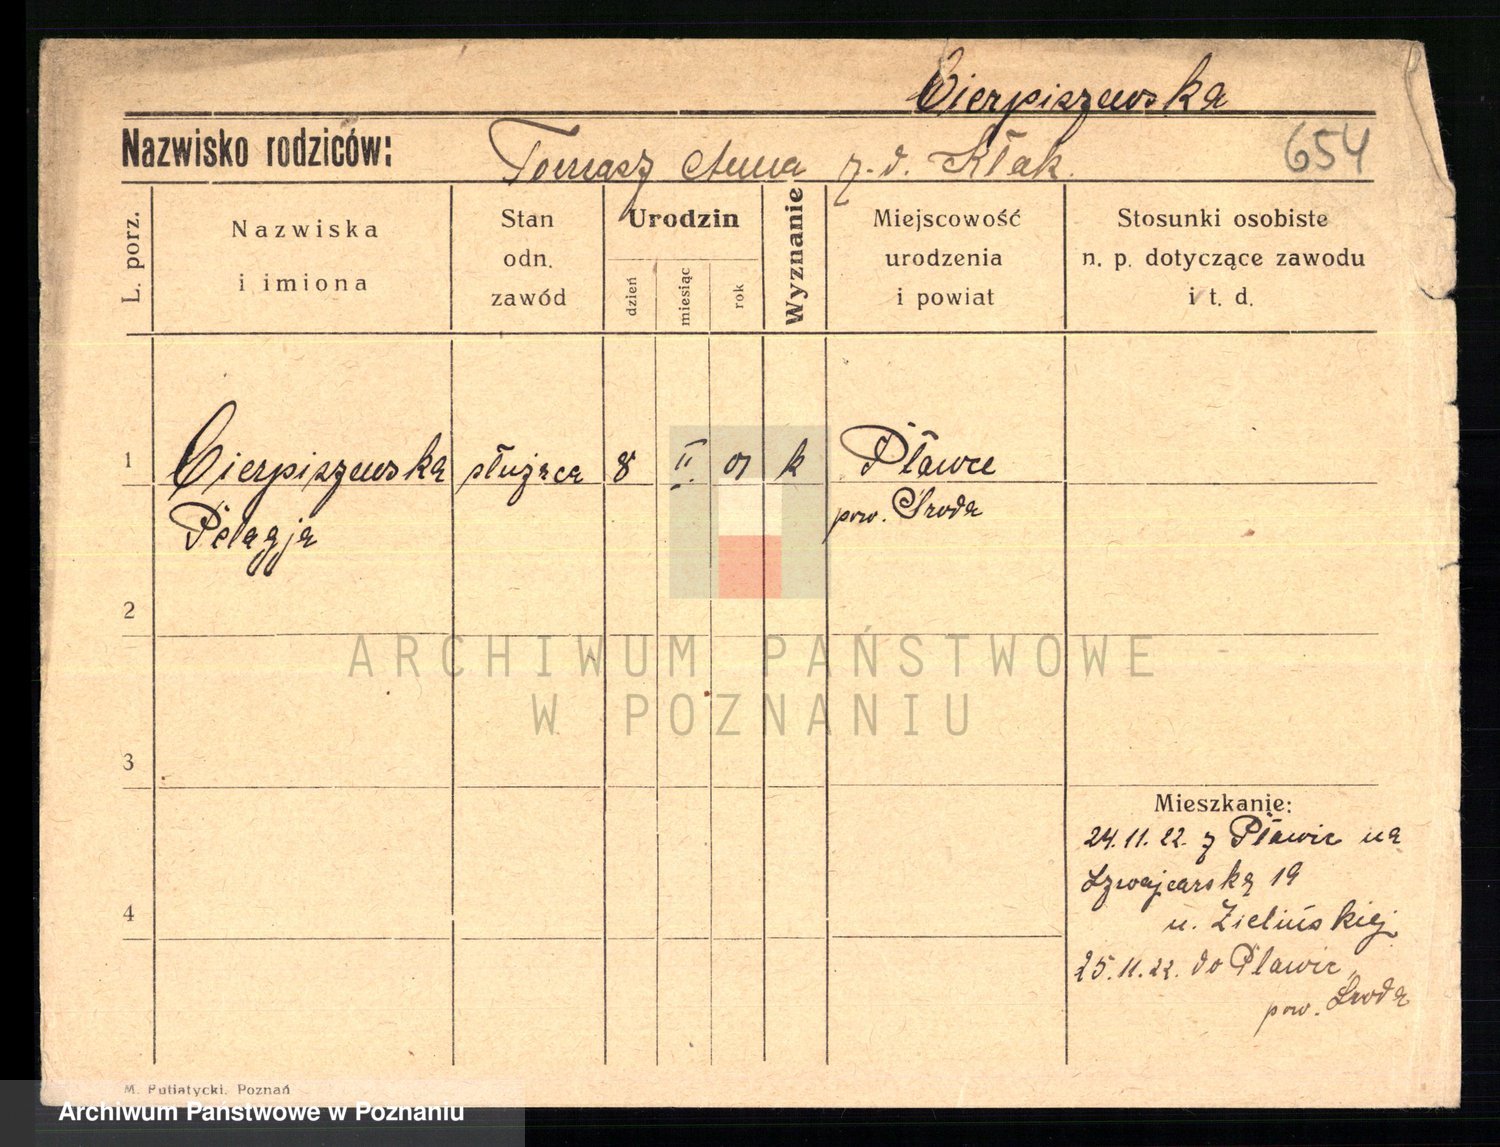 Cierpiszewska
Nazwisko rodziców: Tomasz Anna z. d. Kłak.
654
L. porz.
Nazwiska
i imiona
Stan
odn.
zawód
Urodzin
dzień
miesiąc
rok
Wyznanie
Miejscowość
urodzenia
i powiat
Stosunki osobiste
n. p. dotyczące zawodu
i t. d.
1 Cierpiszewska służąca 8 II. 01 k Pławce
Pelagja pow. Środa
2
3
4
Mieszkanie:
24.11.22. z Pławic na
Szwajcarską 19
u. Zielińskiej
25.11.22. do Pławic
pow. Środa
M. Putiatycki, Poznań
ARCHIWUM PAŃSTWOWE
W POZNANIU
Archiwum Państwowe w Poznaniu